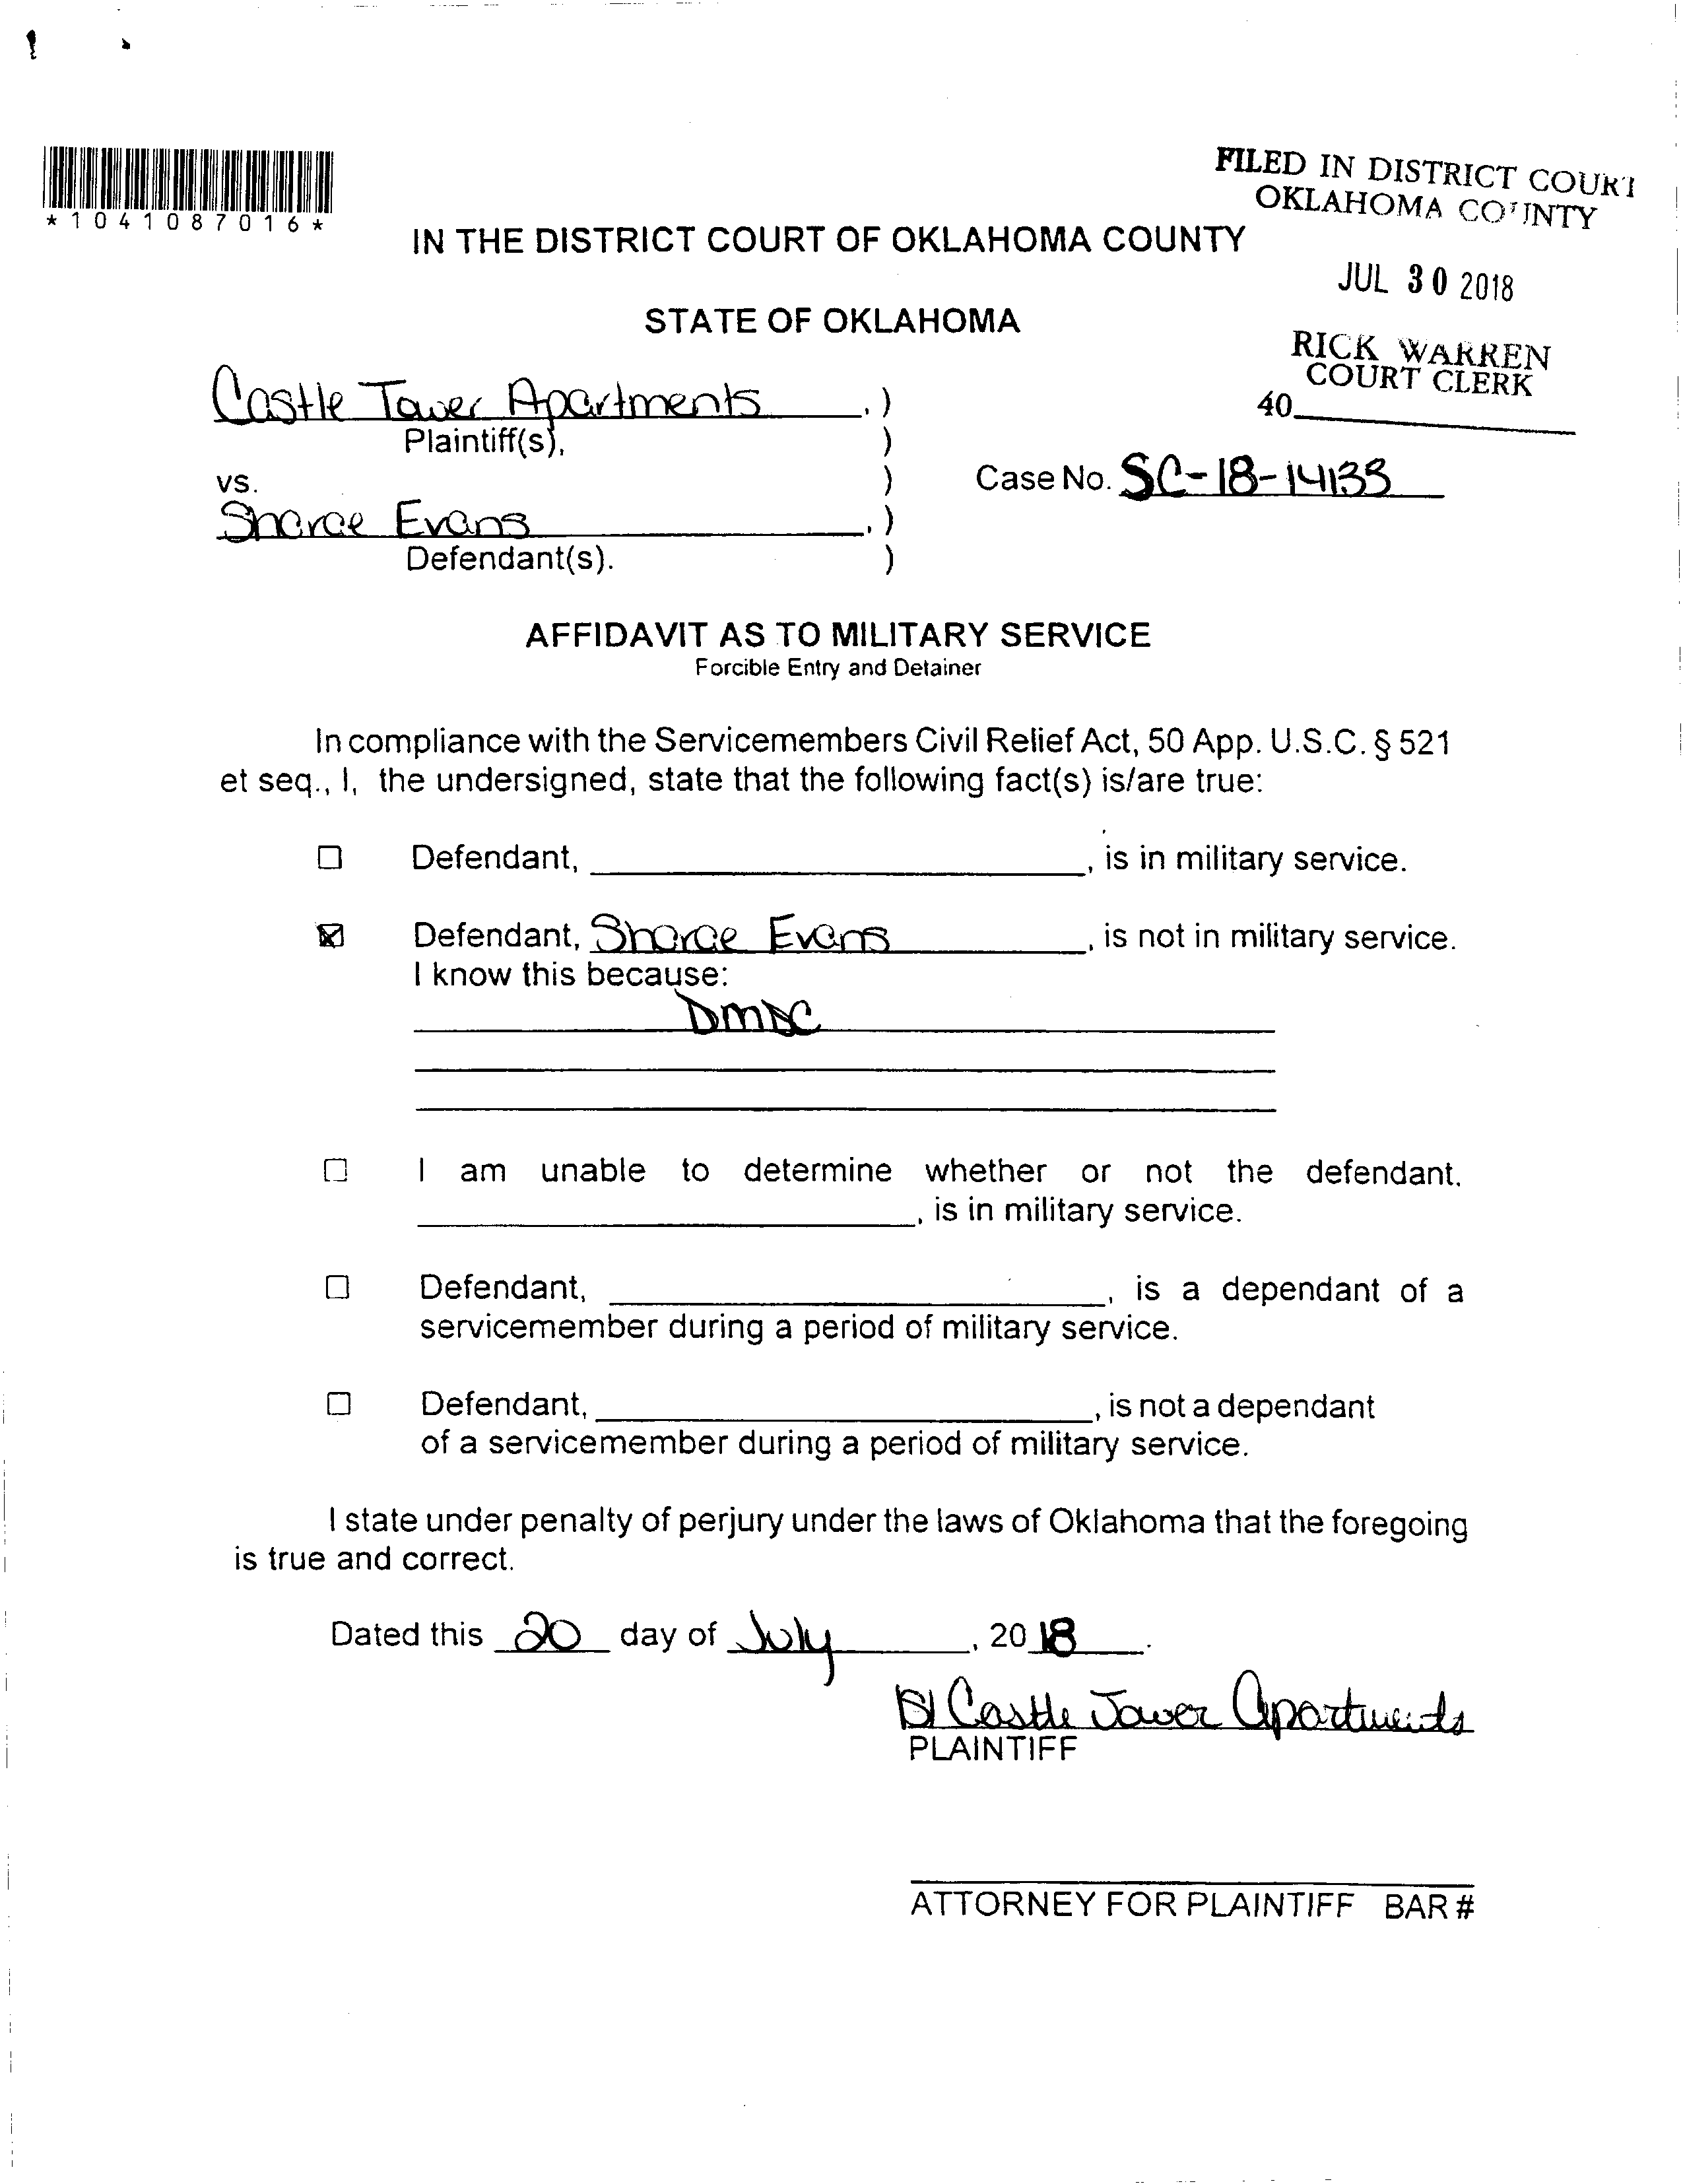 *1041087016*
FILED IN DISTRICT COURT
OKLAHOMA COUNTY
IN THE DISTRICT COURT OF OKLAHOMA COUNTY
JUL 30 2018
STATE OF OKLAHOMA
RICK WARREN
COURT CLERK
40
Castle Tower Apartments , )
Plaintiff(s), )
vs. )
Case No. SC-18-14133
Sharae Evans , )
Defendant(s). )
AFFIDAVIT AS TO MILITARY SERVICE
Forcible Entry and Detainer
In compliance with the Servicemembers Civil Relief Act, 50 App. U.S.C. § 521
et seq., I, the undersigned, state that the following fact(s) is/are true:
☐ Defendant, , is in military service.
☒ Defendant, Sharae Evans , is not in military service.
I know this because:
DMDC
☐ I am unable to determine whether or not the defendant.
, is in military service.
☐ Defendant, , is a dependant of a
servicemember during a period of military service.
☐ Defendant, , is not a dependant
of a servicemember during a period of military service.
I state under penalty of perjury under the laws of Oklahoma that the foregoing
is true and correct.
Dated this 20 day of July , 20 18 .
Castle Tower Apartments
PLAINTIFF
ATTORNEY FOR PLAINTIFF BAR #